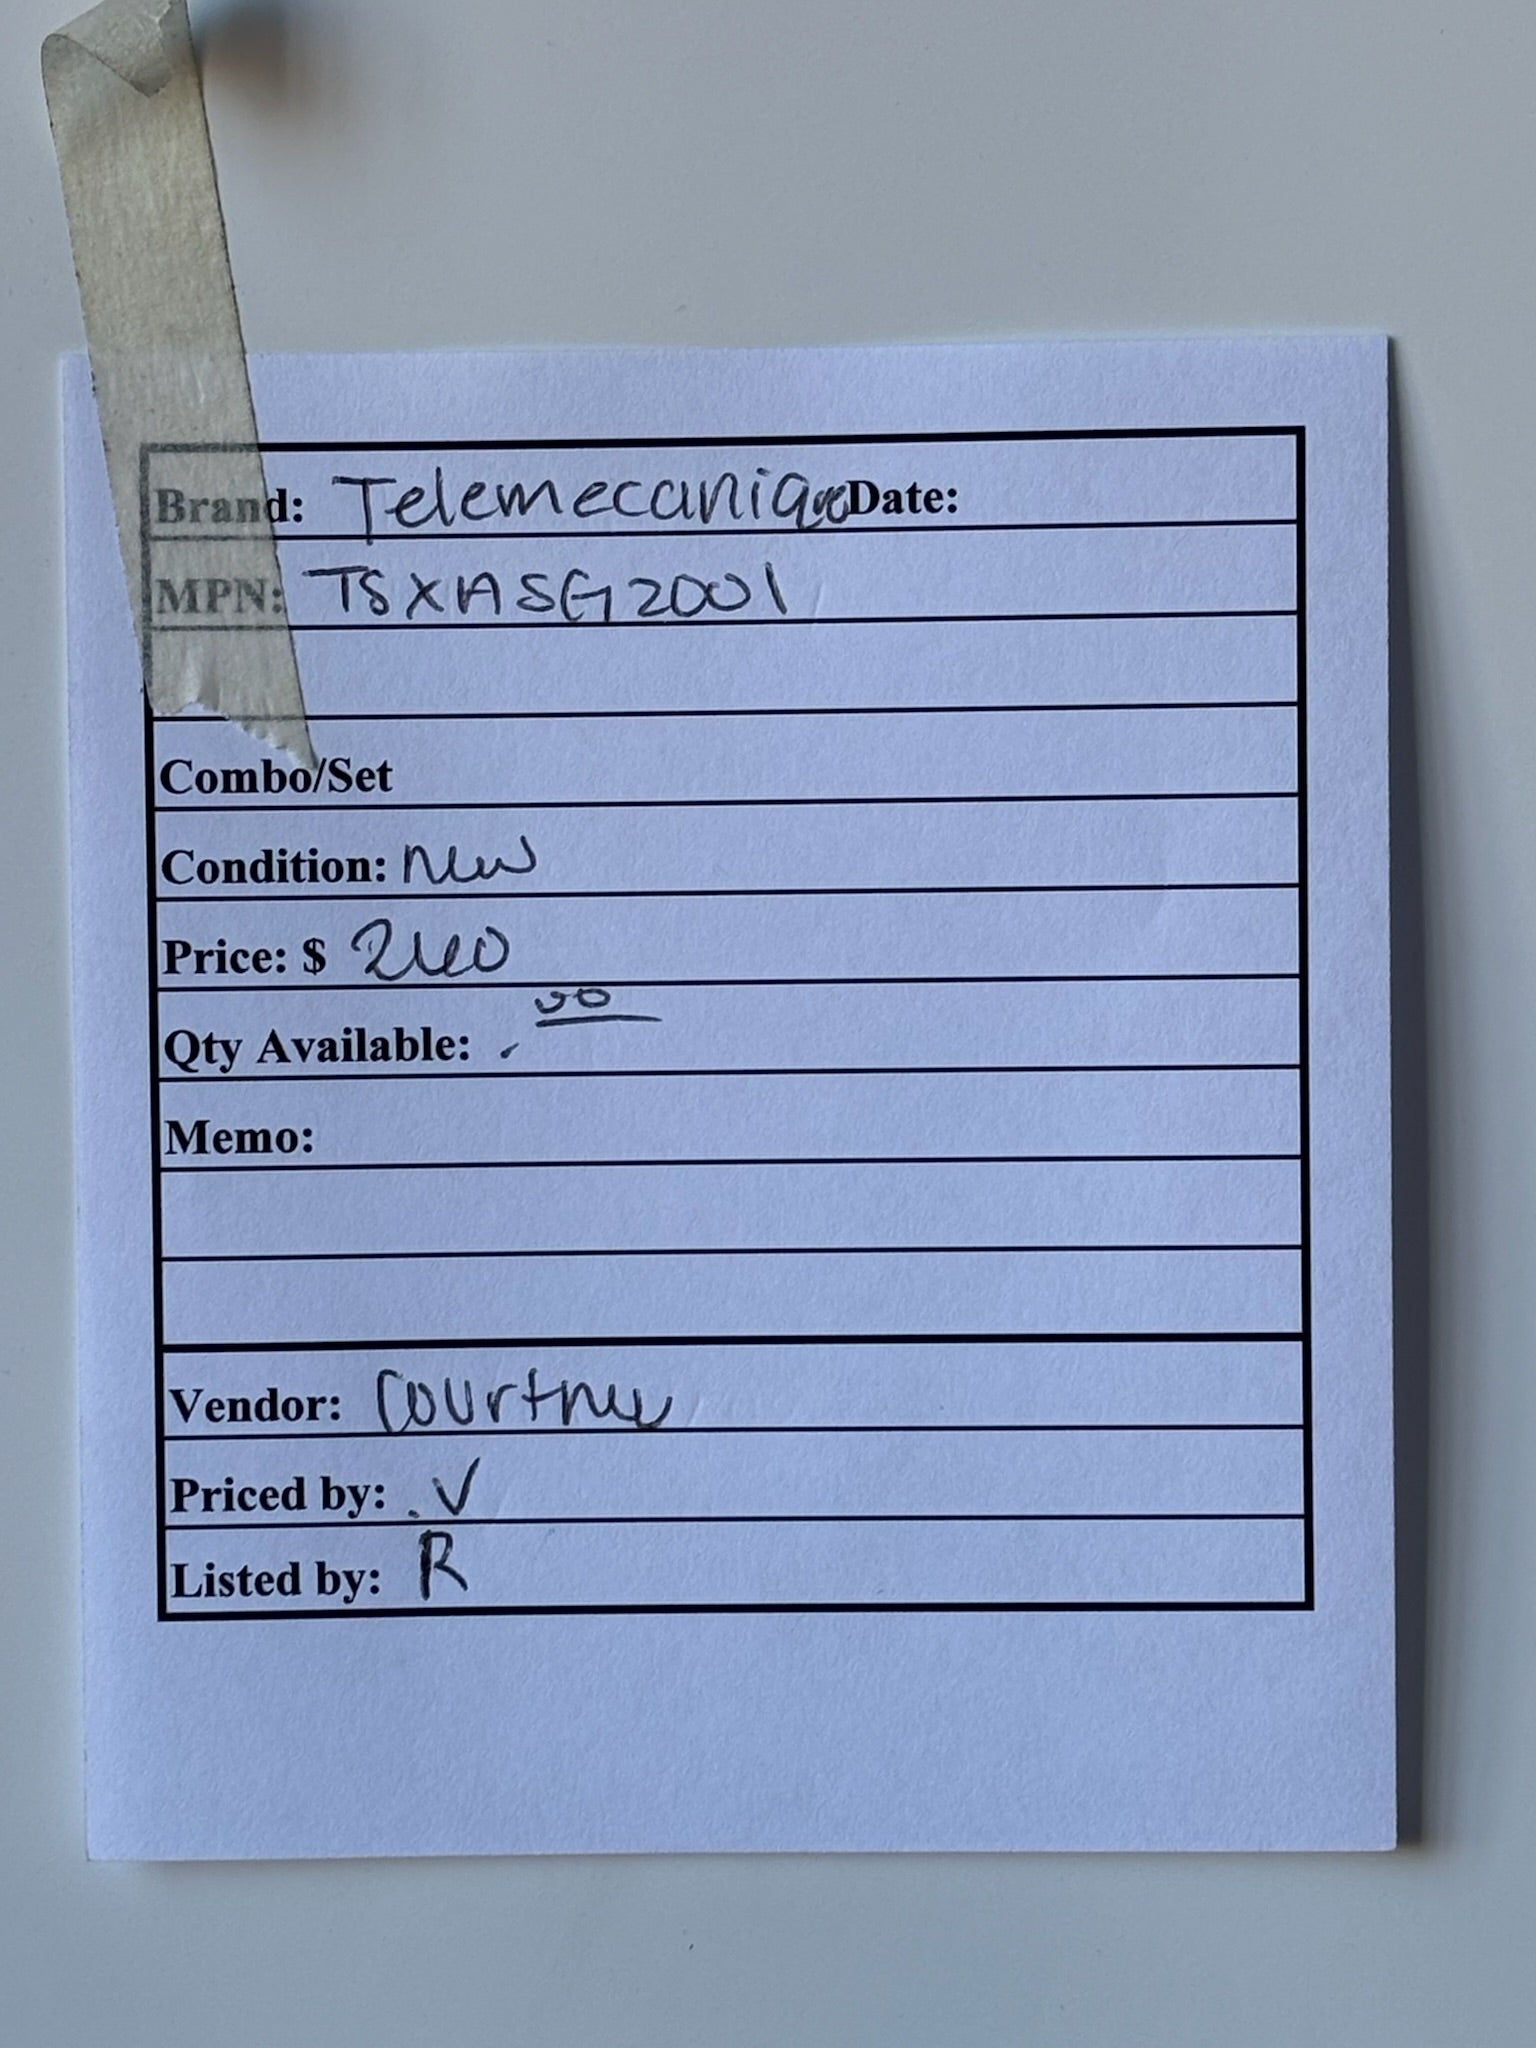 Brand: Telemecanique Date:
MPN: TSXASG2001
Combo/Set
Condition: new
Price: $ 240
00
Qty Available:
Memo:
Vendor: Courtney
Priced by: .V
Listed by: R